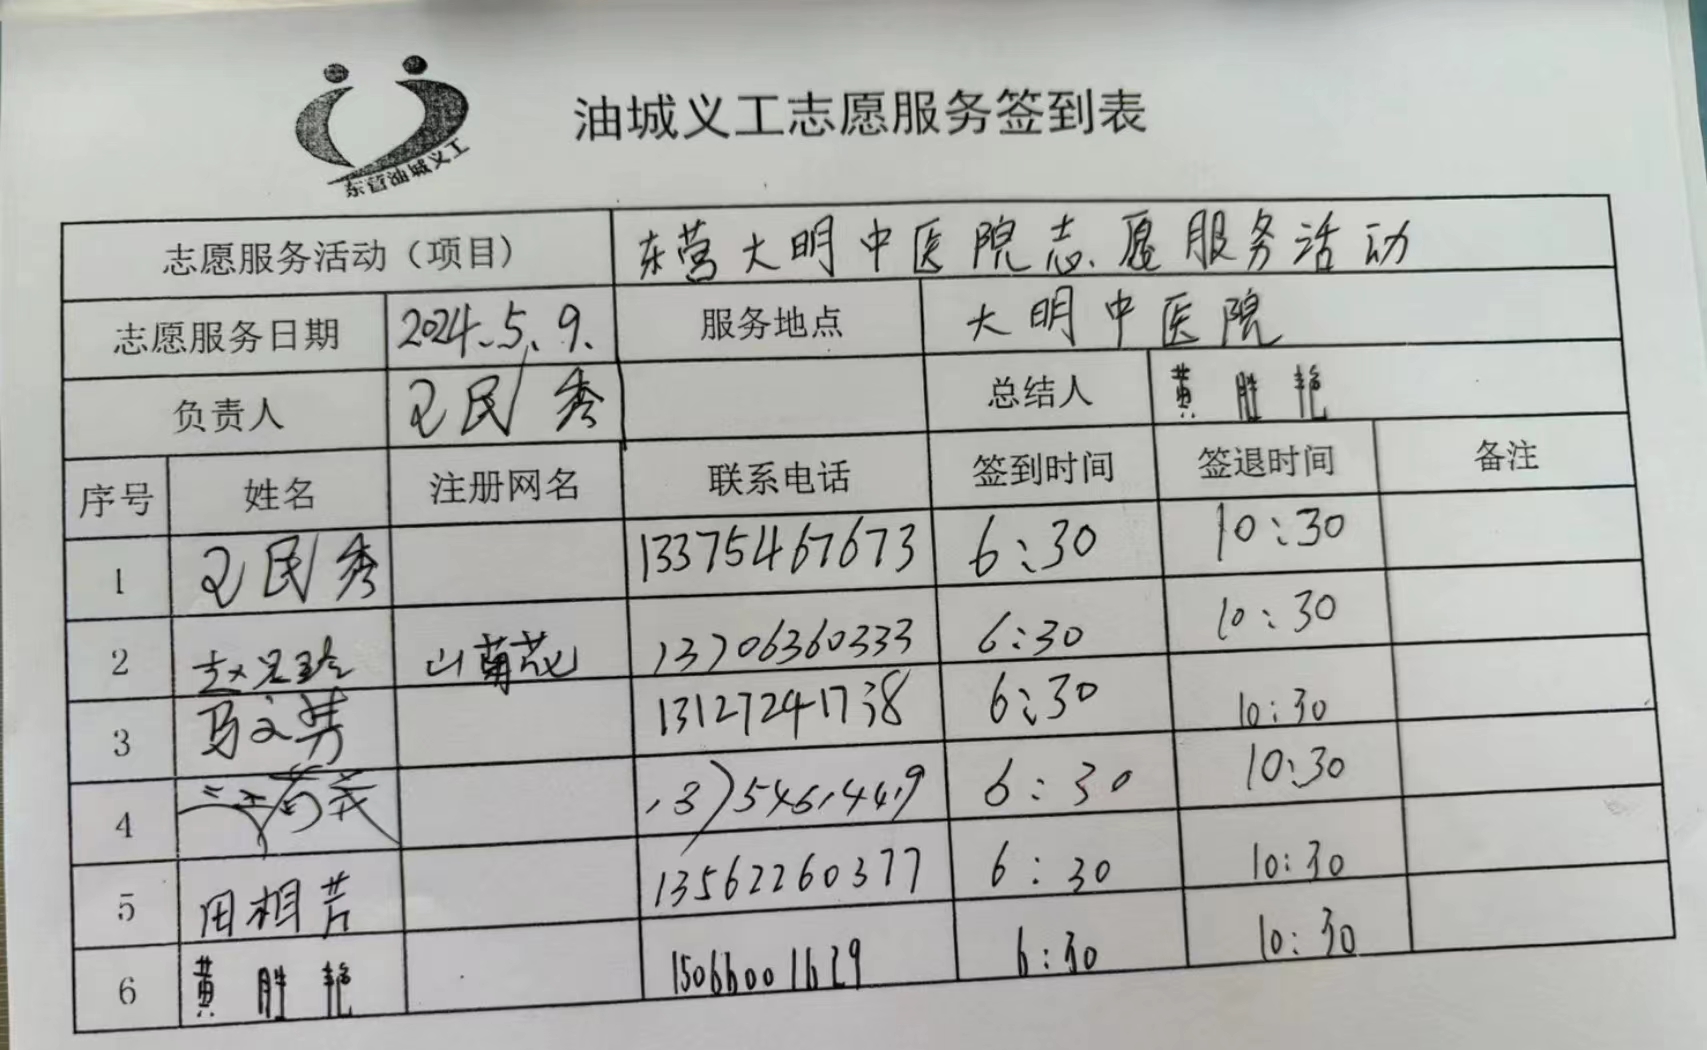 东营油城义工
油城义工志愿服务签到表
志愿服务活动（项目） 东营大明中医院志愿服务活动
志愿服务日期 2024.5.9. 服务地点 大明中医院
负责人 王民秀 总结人 黄胜艳
序号 姓名 注册网名 联系电话 签到时间 签退时间 备注
1 王民秀 13375467673 6:30 10:30
2 山菊花 13706360333 6:30 10:30
3 马文男 13127241738 6:30 10:30
4 6:30 10:30
5 田相芳 13562260377 6:30 10:30
6 黄胜艳 15066001629 6:30 10:30